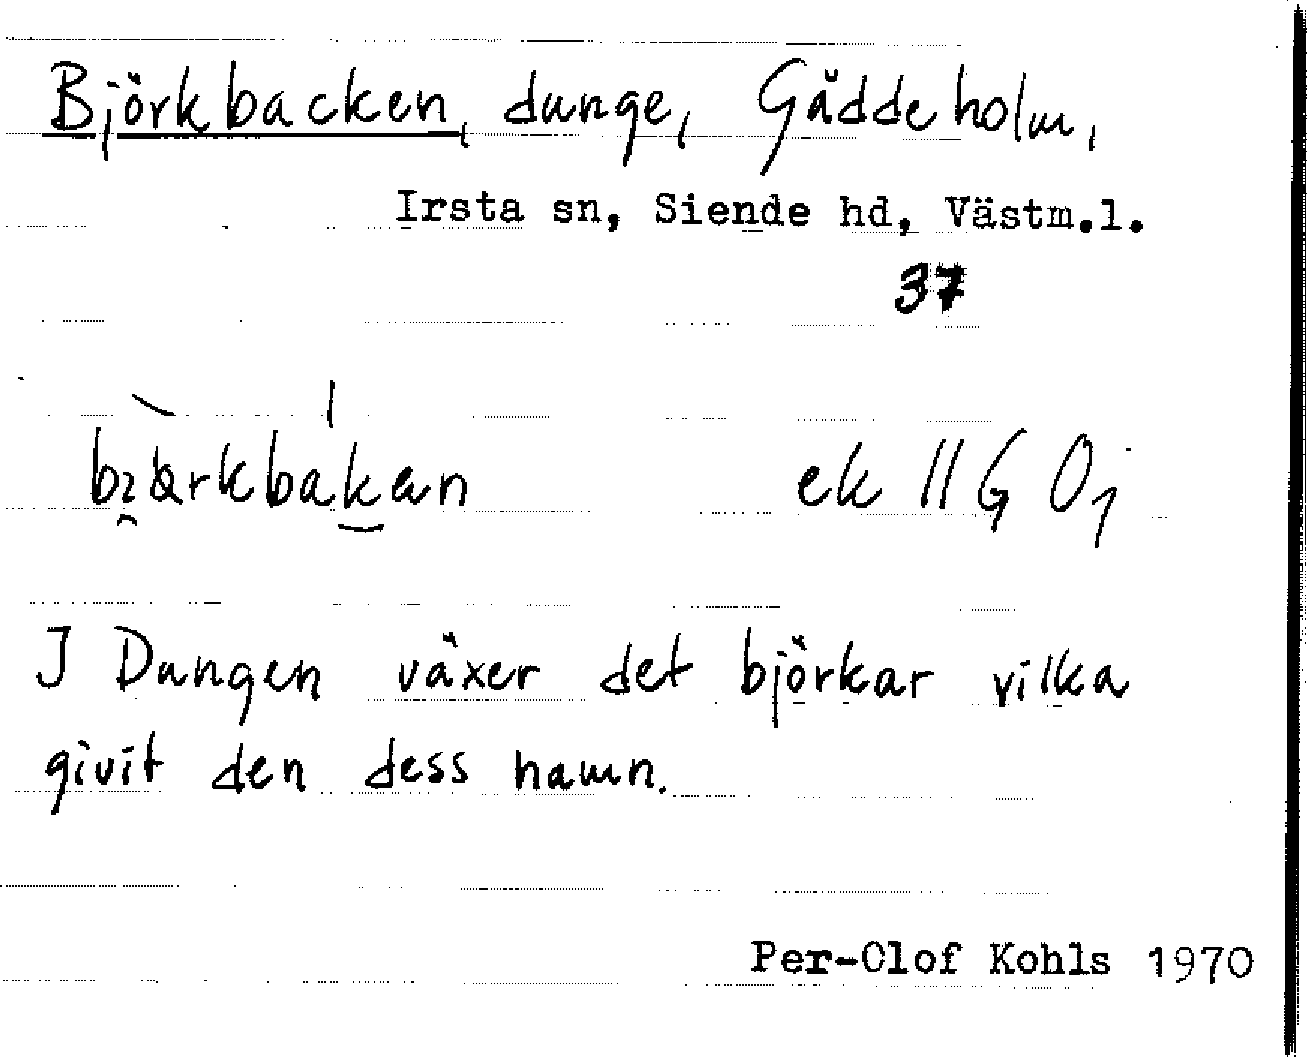 Björkbacken, dunge, Gäddeholm,
Irsta sn, Siende hd, Västm.l.
37
ek II G Oj
I Dungen växer det björkar vilka
givit den dess namn.
Per-Olof Kohls 1970